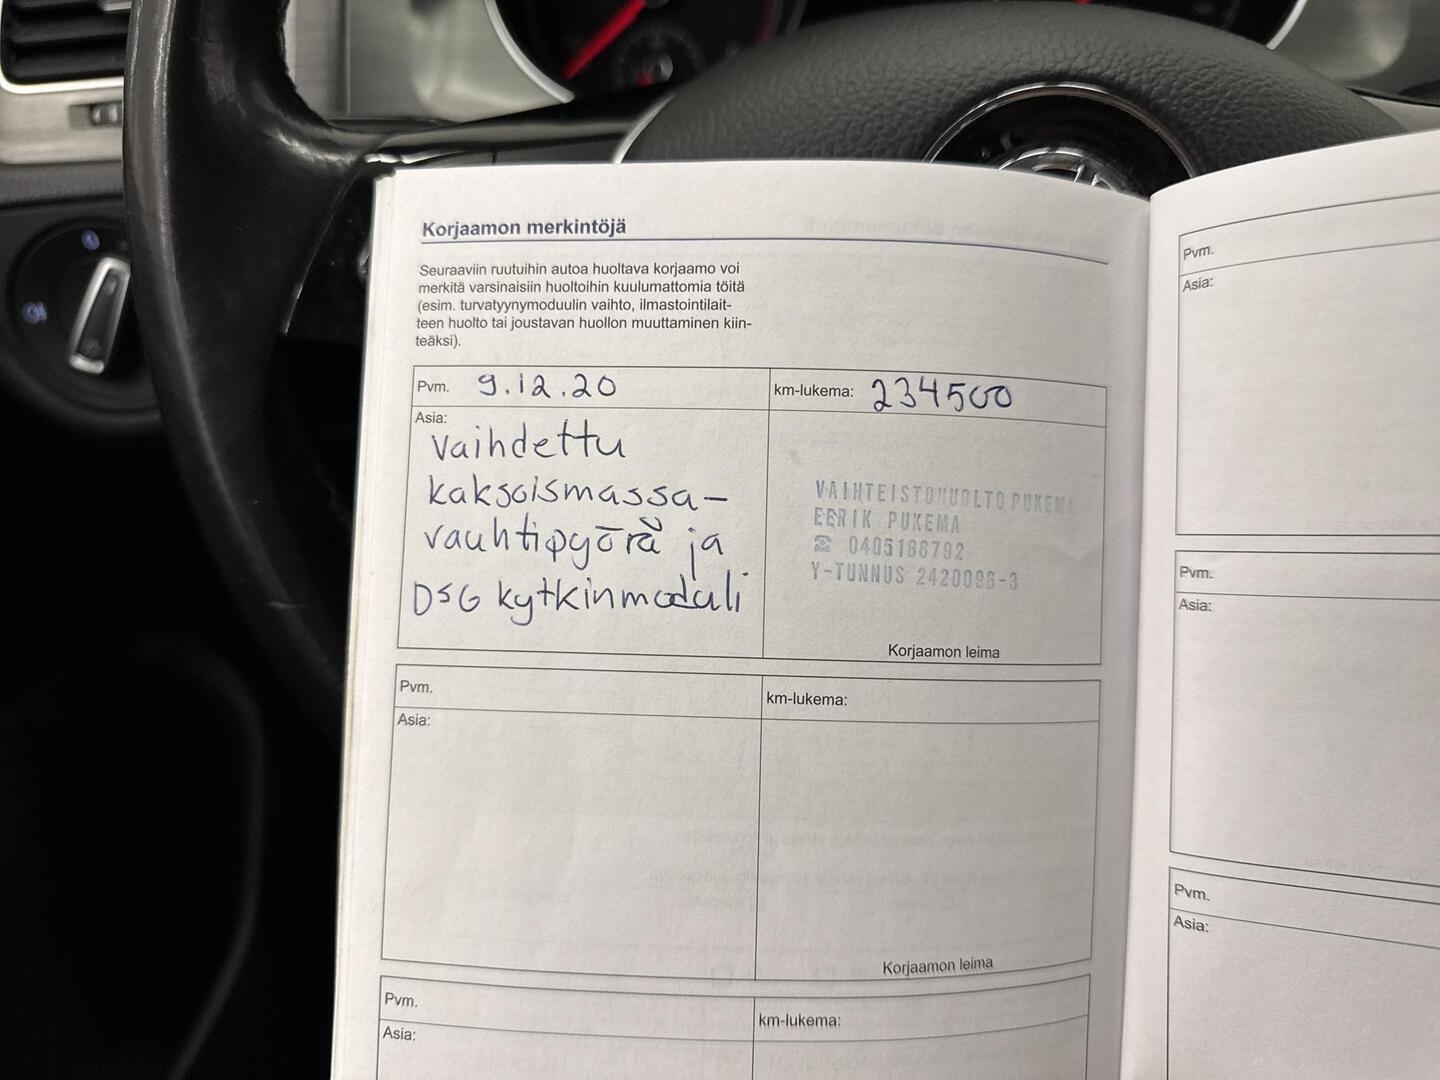 Korjaamon merkintöjä
Seuraaviin ruutuihin autoa huoltava korjaamo voi
merkitä varsinaisiin huoltoihin kuulumattomia töitä
(esim. turvatyynymoduulin vaihto, ilmastointilait-
teen huolto tai joustavan huollon muuttaminen kiin-
teäksi).
Pvm. 9.12.20
km-lukema: 234500
Asia:
Vaihdettu
kaksoismassa-
vauhtipyörä ja
DSG kytkinmoduli
VAIHTEISTOHUOLTO PUKEMA
EERIK PUKEMA
☎ 0405186792
Y-TUNNUS 2420096-3
Korjaamon leima
Pvm.
km-lukema:
Asia:
Korjaamon leima
Pvm.
km-lukema:
Asia:
Pvm.
Asia:
Pvm.
Asia:
Pvm.
Asia: